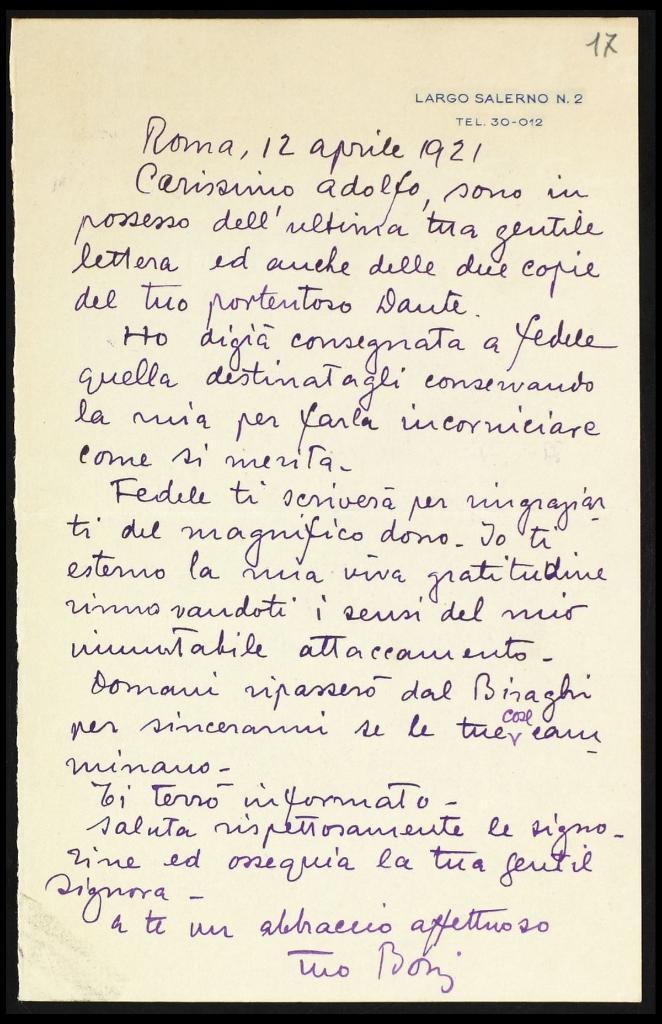 17
LARGO SALERNO N. 2
TEL. 30-012
Roma, 12 aprile 1921
Carissimo Adolfo, sono in
possesso dell'ultima tua gentile
lettera ed anche delle due copie
del tuo portentoso Dante.
Ho digià consegnata a Fedele
quella destinatagli conservando
la mia per farla incorniciare
come si merita.
Fedele ti scriverà per ringraziar
ti del magnifico dono. Io ti
esterno la mia viva gratitudine
rinnovandoti i sensi del mio
immutabile attaccamento.
Domani ripasserò dal Biraghi
per sincerarmi se le tue cose cam
minano.
Ti terrò informato.
Saluta rispettosamente le signo-
rine ed ossequia la tua gentil
signora.
A te un abbraccio affettuoso
Tuo